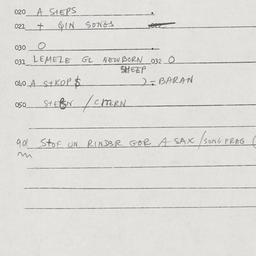 020 A STEPS
021 + GIN SONGS
030 O
031 LEMELE GL NEWBORN 032 O
SHEEP
040 A STROP$ ) = BARAN
050 STERN / CITERN
901 STOF UN RINDER GOR A SAX / SONG FROG (